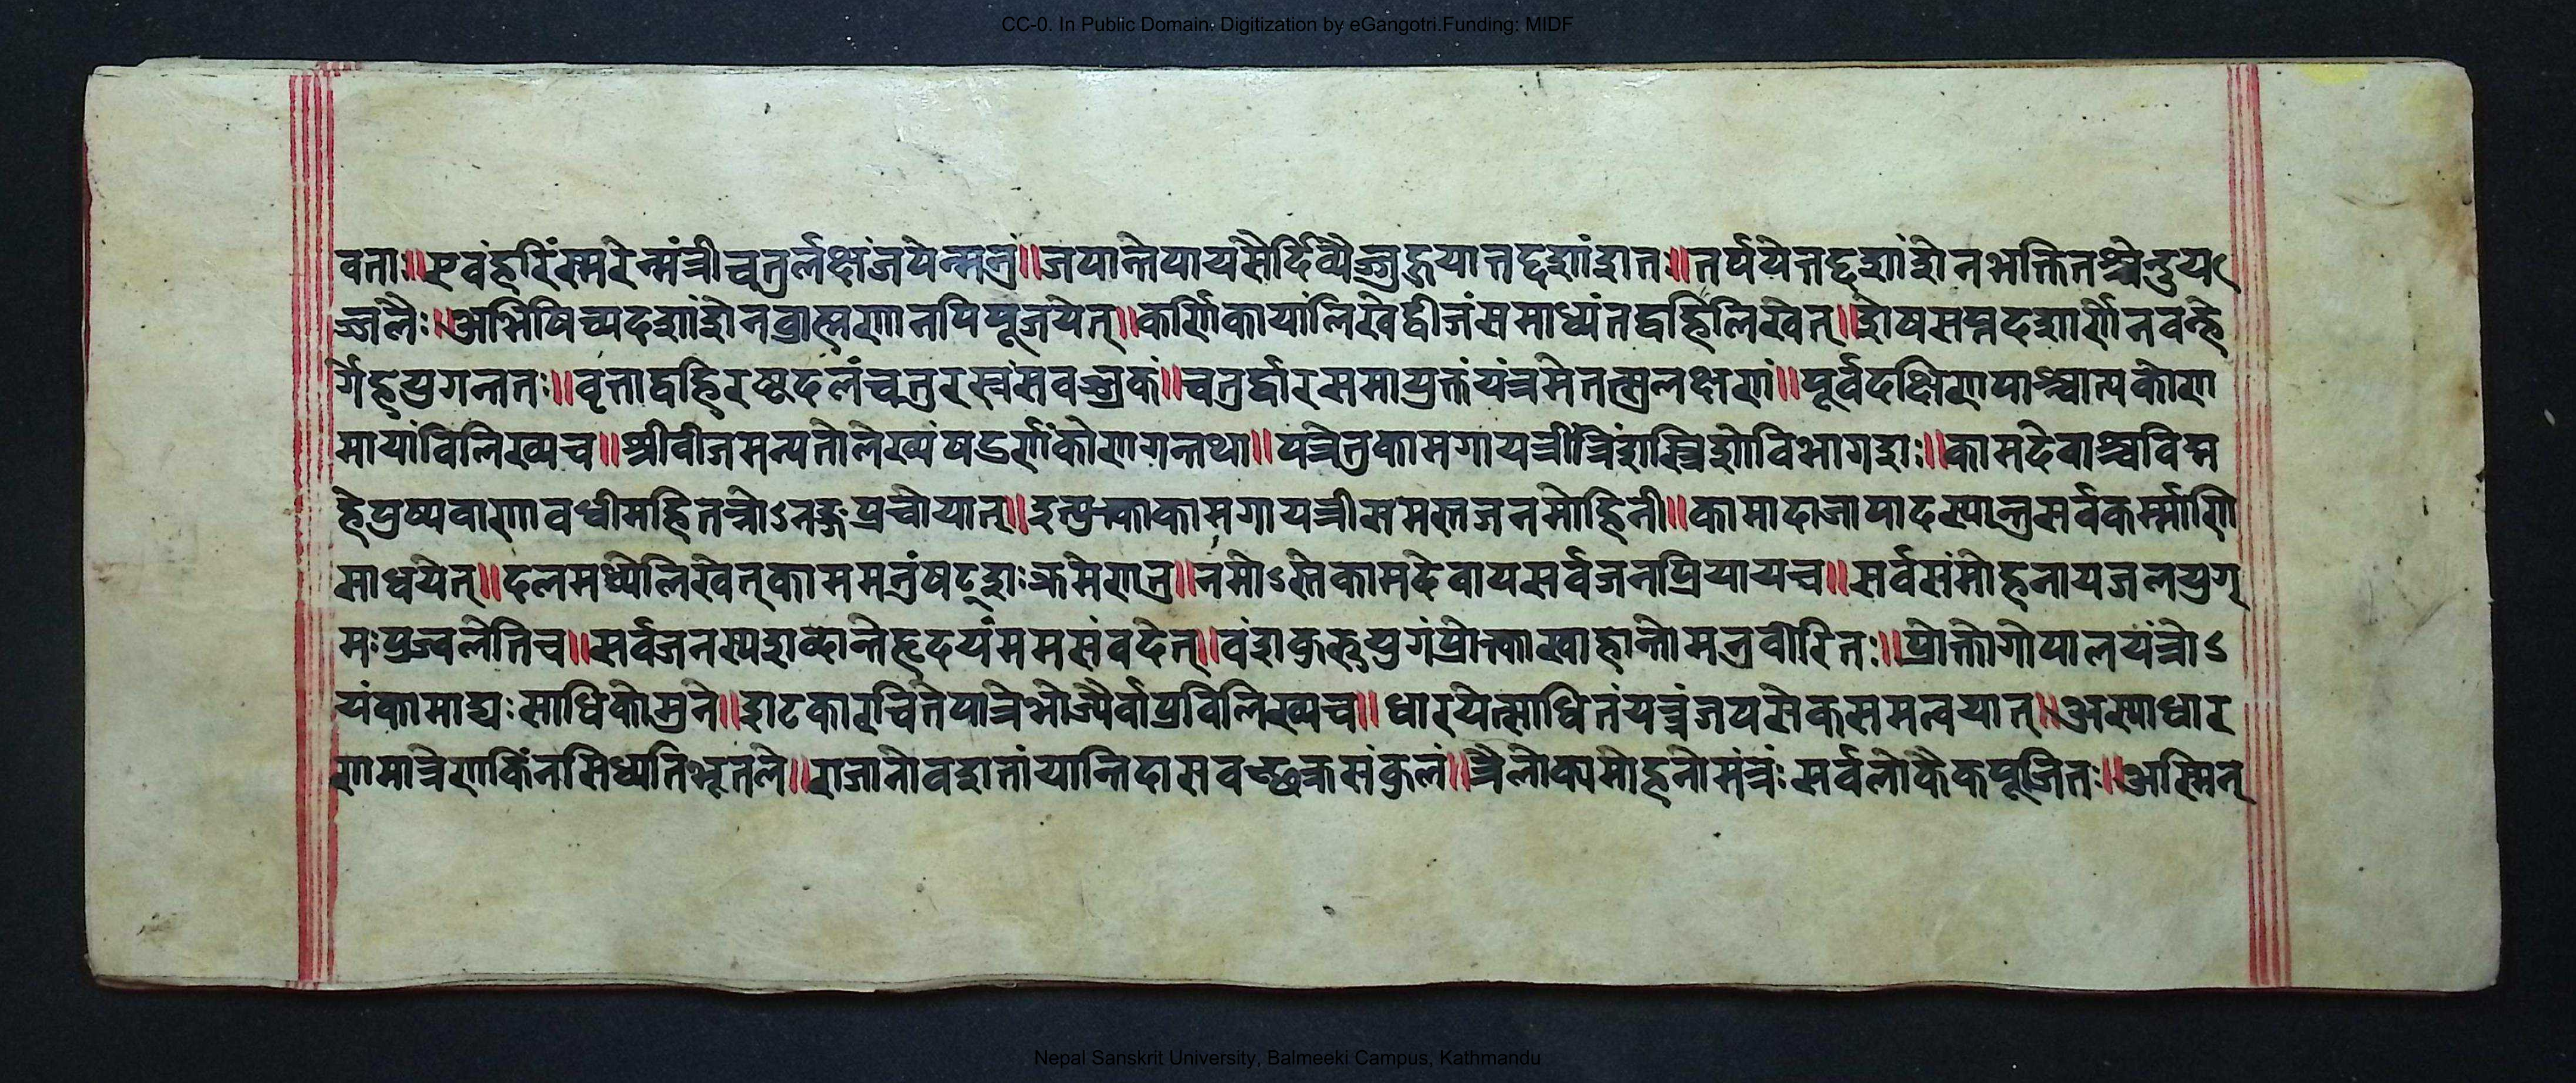 CC-0. In Public Domain. Digitization by eGangotri.Funding: MIDF
वताः॥एवंहरिंस्मरेन्मंत्रीचतुर्लक्षंजपेन्मनुं॥जपान्तेपायसैर्दिव्यैज्जुहुयात्तद्दशांशतः॥तर्पयेत्तद्दशांशेनभक्तितश्चेन्दुय
ज्जलैः॥अभिषिच्यदशांशेनब्राह्मणानपिपूजयेत्॥कर्णिकायांलिखेद्वीजंससाध्यंतद्वहिलिखेत्॥शेषसप्तदशार्णेनवन्हे
र्गेहयुगन्ततः॥वृत्ताद्वहिरष्टदलंचतुरस्त्रंसवज्रकं॥चतुर्द्वारसमायुक्तंयंत्रमेतत्सुलक्षणं॥पूर्वदक्षिणपाश्चात्यकोण
मायांविलिख्यच॥श्रीवीजमन्यतोलेख्यंषडर्णंकोणगन्तथा॥पत्रेतुकामगायत्रींत्रिंशस्त्रिशोविभागशः॥कामदेवाश्चविद्म
हेपुष्पवाणावधीमहितन्नोऽनङ्गप्रचोयात्॥इत्युक्त्वाकामगायत्रीसमस्तजनमोहिनी॥कामादाजापादस्यान्तुसर्वकर्म्माणि
साधयेत्॥दलमध्येलिखेत्काममनुंषट्शःक्रमेणतु॥नमोऽस्तेकामदेवायसर्वजनप्रियायच॥सर्वसंमोहनायजलयुग्
मःप्रज्वलेतिच॥सर्वजनस्यशब्दान्तेहृदयंममसंवदेत्॥वंशकुरुयुगंप्रोक्त्वास्वाहान्तोमनुवीरितः॥प्रोक्तोगोपालयंत्रोऽ
यंकामाद्यःसाधिकोमुने॥हाटकारचितेपात्रेभोर्ज्यैर्वाप्रविलिख्यच॥धारयेत्साधितंयन्त्रंजपसेकसमन्वयात्॥अस्याधार
णमात्रेणकिंनसिध्यतिभूतले॥राजानोवशतांयान्तिदासवच्छत्रसंकुलं॥त्रैलोक्यमोहनोमंत्रंःसर्वलोकैकपूजितः॥अस्मिन्
Nepal Sanskrit University, Balmeeki Campus, Kathmandu